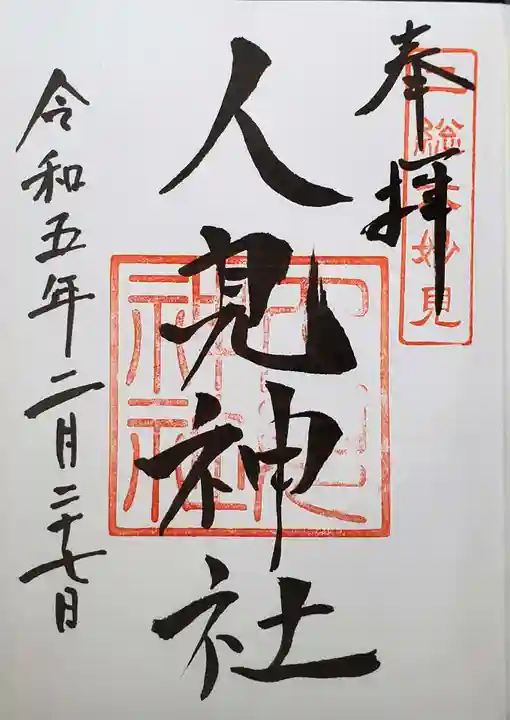 奉拝
総 妙見
人見神社
人見神社
令和五年二月二十七日